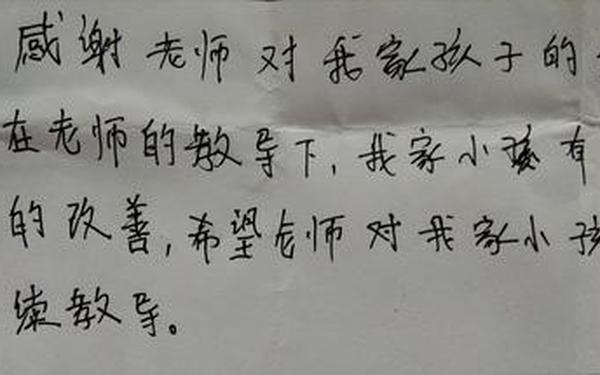 感谢老师对我家孩子的
在老师的教导下,我家小孩有
的改善,希望老师对我家小孩
续教导。